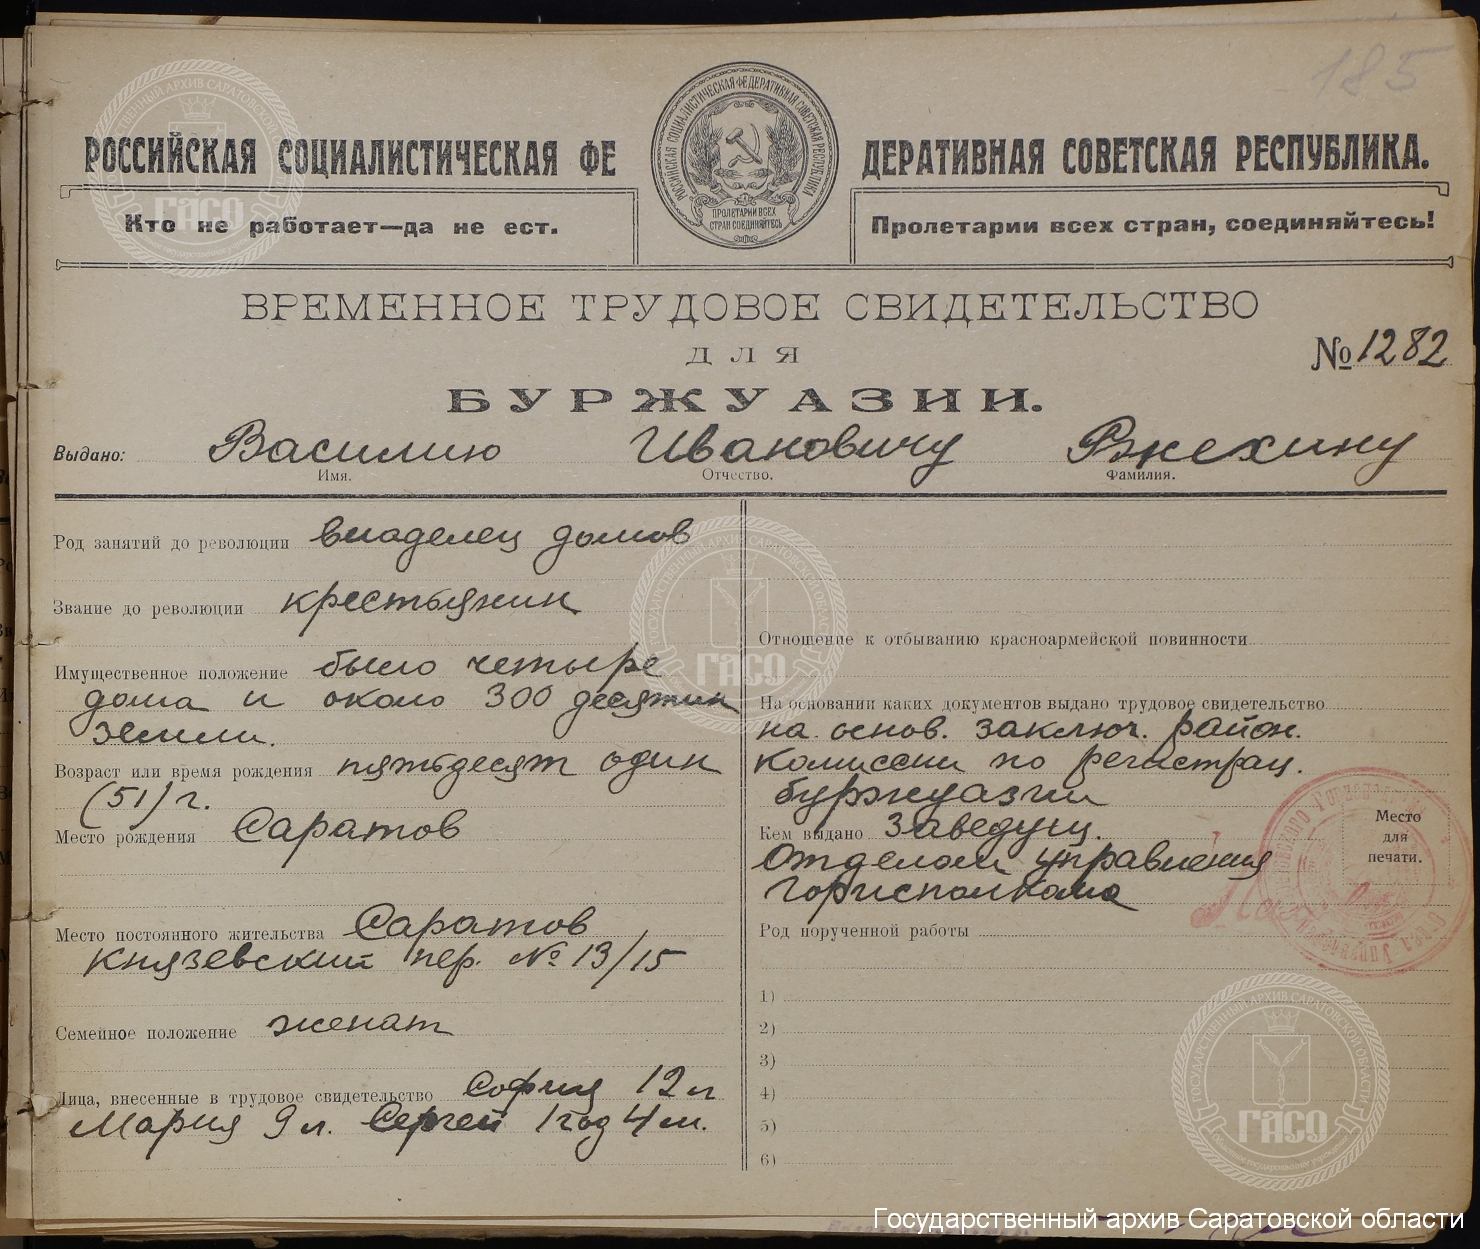 185
РОССИЙСКАЯ СОЦИАЛИСТИЧЕСКАЯ ФЕДЕРАТИВНАЯ СОВЕТСКАЯ РЕСПУБЛИКА.
РОССИЙСКАЯ СОЦИАЛИСТИЧЕСКАЯ ФЕДЕРАТИВНАЯ СОВЕТСКАЯ РЕСПУБЛИКА
ПРОЛЕТАРИИ ВСЕХ
СТРАН СОЕДИНЯЙТЕСЬ
Кто не работает—да не ест.
Пролетарии всех стран, соединяйтесь!
ВРЕМЕННОЕ ТРУДОВОЕ СВИДЕТЕЛЬСТВО
ДЛЯ
№ 1282
БУРЖУАЗИИ.
Выдано: Василию Ивановичу Ржехину
Имя. Отчество. Фамилия.
Род занятий до революции владелец домов
Звание до революции крестьянин
Имущественное положение было четыре
дома и около 300 десятин
земли.
Возраст или время рождения пятьдесят один
(51) г.
Место рождения Саратов
Место постоянного жительства Саратов
Князевский пер. № 13/15
Семейное положение женат
Лица, внесенные в трудовое свидетельство София 12 л
Мария 9 л. Сергей 1 год 4 м.
Отношение к отбыванию красноармейской повинности
На основании каких документов выдано трудовое свидетельство
на основ. заключ. район.
комиссии по регистрац.
буржуазии
Кем выдано Заведущ.
отделом управления
горисполкома
Место
для
печати.
Род порученной работы
1)
2)
3)
4)
5)
6)
ГОСУДАРСТВЕННЫЙ АРХИВ САРАТОВСКОЙ ОБЛАСТИ
ГАСО
ГОСУДАРСТВЕННЫЙ АРХИВ САРАТОВСКОЙ ОБЛАСТИ
ГАСО
ГОСУДАРСТВЕННЫЙ АРХИВ САРАТОВСКОЙ ОБЛАСТИ
ГАСО
Областное государственное учреждение
Государственный архив Саратовской области